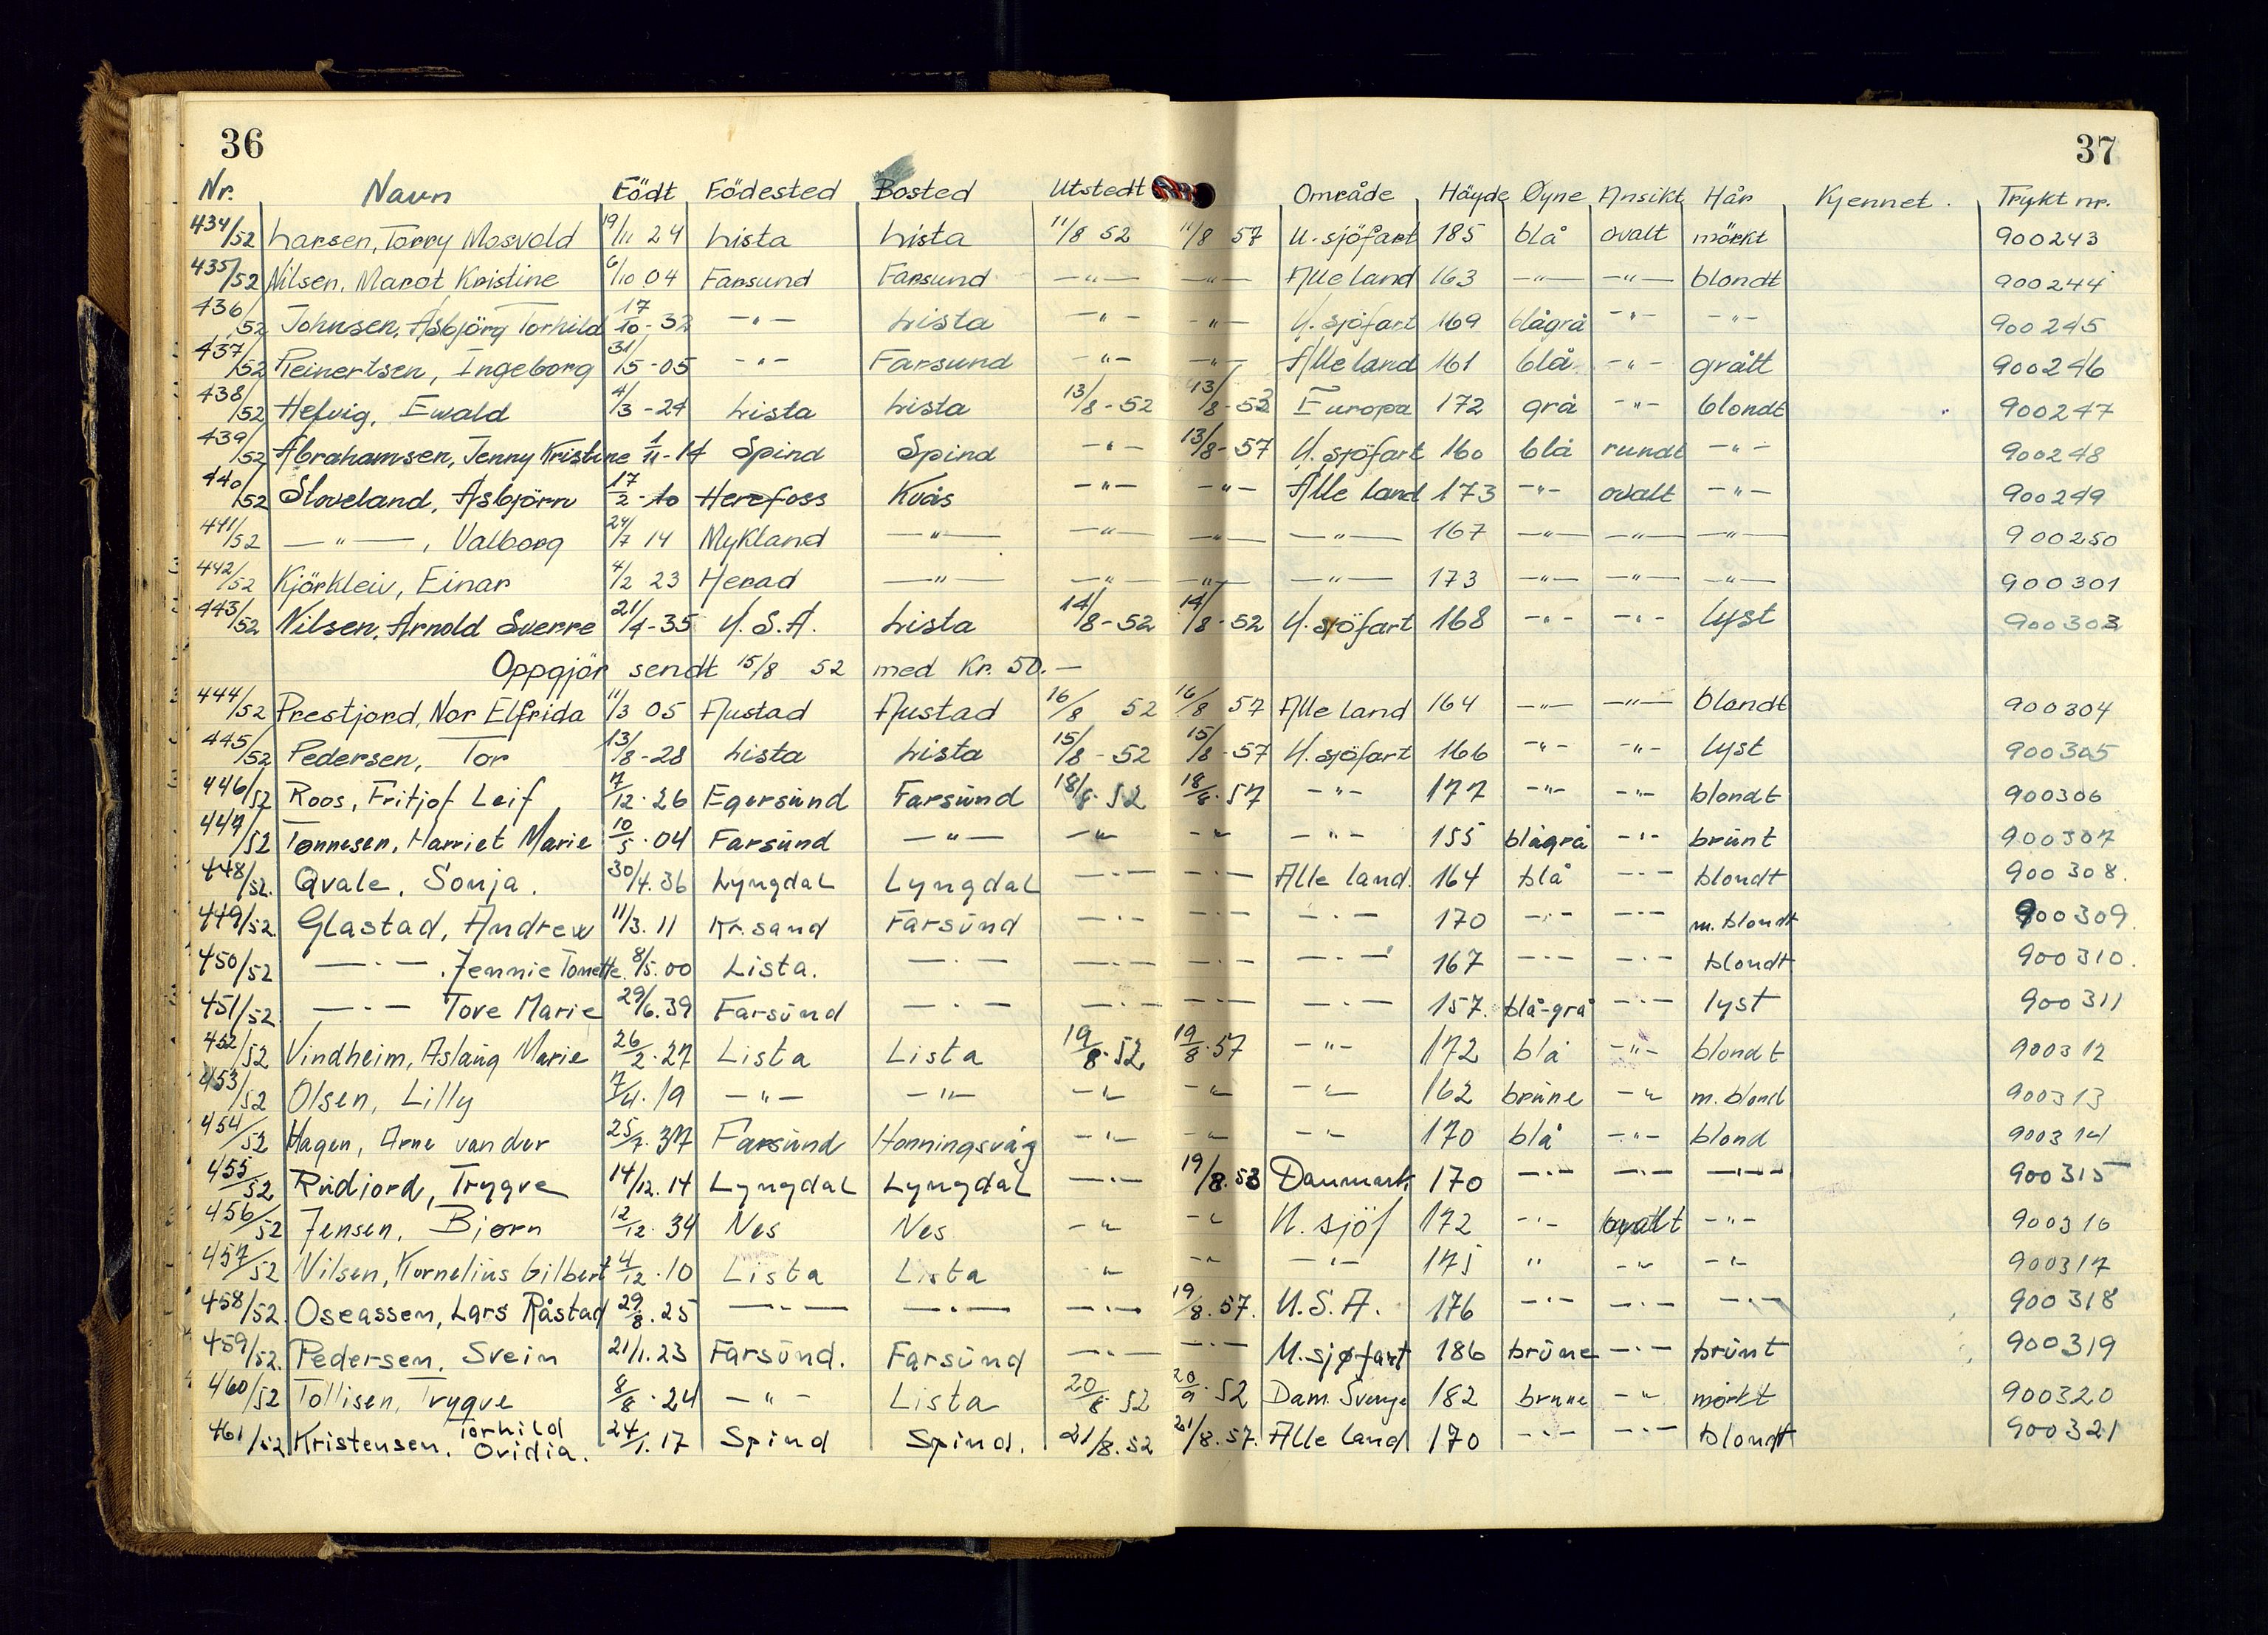 36 37
Nr. Navn Födt Födested Bosted Utstedt Område Höyde Øyne Ansikt Hår Kjennet. Trykt nr.
434/52 Larsen, Torry Mosvold 19/11 24 Lista Lista 11/8 52 11/8 57 U. sjöfart 185 blå ovalt mörkt 900243
435/52 Nilsen, Margt Kristine 6/10 04 Farsund Farsund —"— —"— Alle land 163 —"— —"— blondt 900244
436/52 Johnsen, Asbjörg Torhild 17/10-32 -"- Lista -"- -"- U. sjöfart 169 blågrå -"- -"- 900245
437/52 Reinertsen, Ingeborg 31/5-05 -"- Farsund -"- -"- Alle land 161 blå -"- grått 900246
438/52 Hefvig, Ewald 4/3-24 Lista Lista 13/8-52 13/8-53 Europa 172 grå -"- blondt 900247
439/52 Abrahamsen, Jenny Kristine 1/11-14 Spind Spind -"- 13/8-57 U. sjöfart 160 blå rundt -"- 900248
440/52 Sloveland, Asbjörn 17/2-10 Herefoss Kvås -"- -"- Alle land 173 -"- ovalt -"- 900249
441/52 —"—, Valborg 24/7 14 Mykland —"— —"— —"— —"— 167 —"— —"— —"— 900250
442/52 Kjörkleiv, Einar 4/2 23 Herad —"— —"— —"— —"— 173 —"— —"— —"— 900301
443/52 Nilsen, Arnold Sverre 21/4-35 U.S.A. Lista 14/8-52 14/8-52 U. sjöfart 168 -"- -"- lyst 900303
Oppgjör sendt 15/8 52 med Kr. 50.—
444/52 Prestjord, Nor Elfrida 11/3 05 Austad Austad 16/8 52 16/8 57 Alle land 164 —"— —"— blondt 900304
445/52 Pedersen, Tor 13/8-28 Lista Lista 15/8-52 15/8-57 U. sjöfart 166 -"- -"- lyst 900305
446/52 Roos, Fritjof Leif 7/12.26 Egersund Farsund 18/8.52 18/8.57 -"- 177 -"- -"- blondt 900306
447/52 Tønnesen, Harriet Marie 10/5.04 Farsund —"— -"- -"- -"- 155 blågrå -"- brunt 900307
448/52. Qvale, Sonja. 30/4.36 Lyngdal Lyngdal —"— —"— Alle land. 164 blå —"— blondt 900308.
449/52. Glastad, Andrew 11/3.11 Kr.sand Farsund —"— —"— —"— 170 —"— —"— m. blondt 900309.
450/52 —"—. Jennie Tonette. 8/5.00 Lista. —"— —"— —"— —"— 167 —"— —"— blondt 900310.
451/52. —"— Tove Marie 29/6.39 Farsund —"— —"— —"— —"— 157. blå-grå —"— lyst 900311
452/52 Vindheim, Aslaug Marie 26/2.27 Lista Lista 19/8.52 19/8.57 -"- 172 blå -"- blondt 900312
453/52 Olsen, Lilly 7/4.19 -"- -"- -"- -"- -"- 162 brune -"- m. blond 900313
454/52 Hagen, Arne van der 25/7.37 Farsund Honningsvåg -"- -"- -"- 170 blå -"- blond 900314
455/52 Rudjord, Trygve 14/12.14 Lyngdal Lyngdal —"— 19/8.53 Danmark 170 —"— —"— —"— 900315
456/52 Jensen, Bjørn 12/12.34 Nes Nes -"- -"- U. sjöf 172 -"- ovalt -"- 900316
457/52 Nilsen, Kornelius Gilbert 4/12.10 Lista Lista " -"- -"- 175 " -"- -"- 900317
458/52. Oseassen, Lars Råstad 29/8.25 —"— —"— —"— 19/8.57. U.S.A. 176 —"— —"— —"— 900318
459/52. Pedersen. Svein 21/1.23 Farsund. Farsund —"— —"— U.sjøfart 186 brune —"— brunt 900319
460/52 Tollisen, Trygve 8/8.24 -"- Lista 20/8 52 20/9.52 Dam. Sverige 182 brune -"- mørkt 900320
461/52 Kristensen. Torhild Ovidia. 24/1.17 Spind Spind. 21/8.52 21/8.57. Alle land 170 —"— —"— blondt 900321